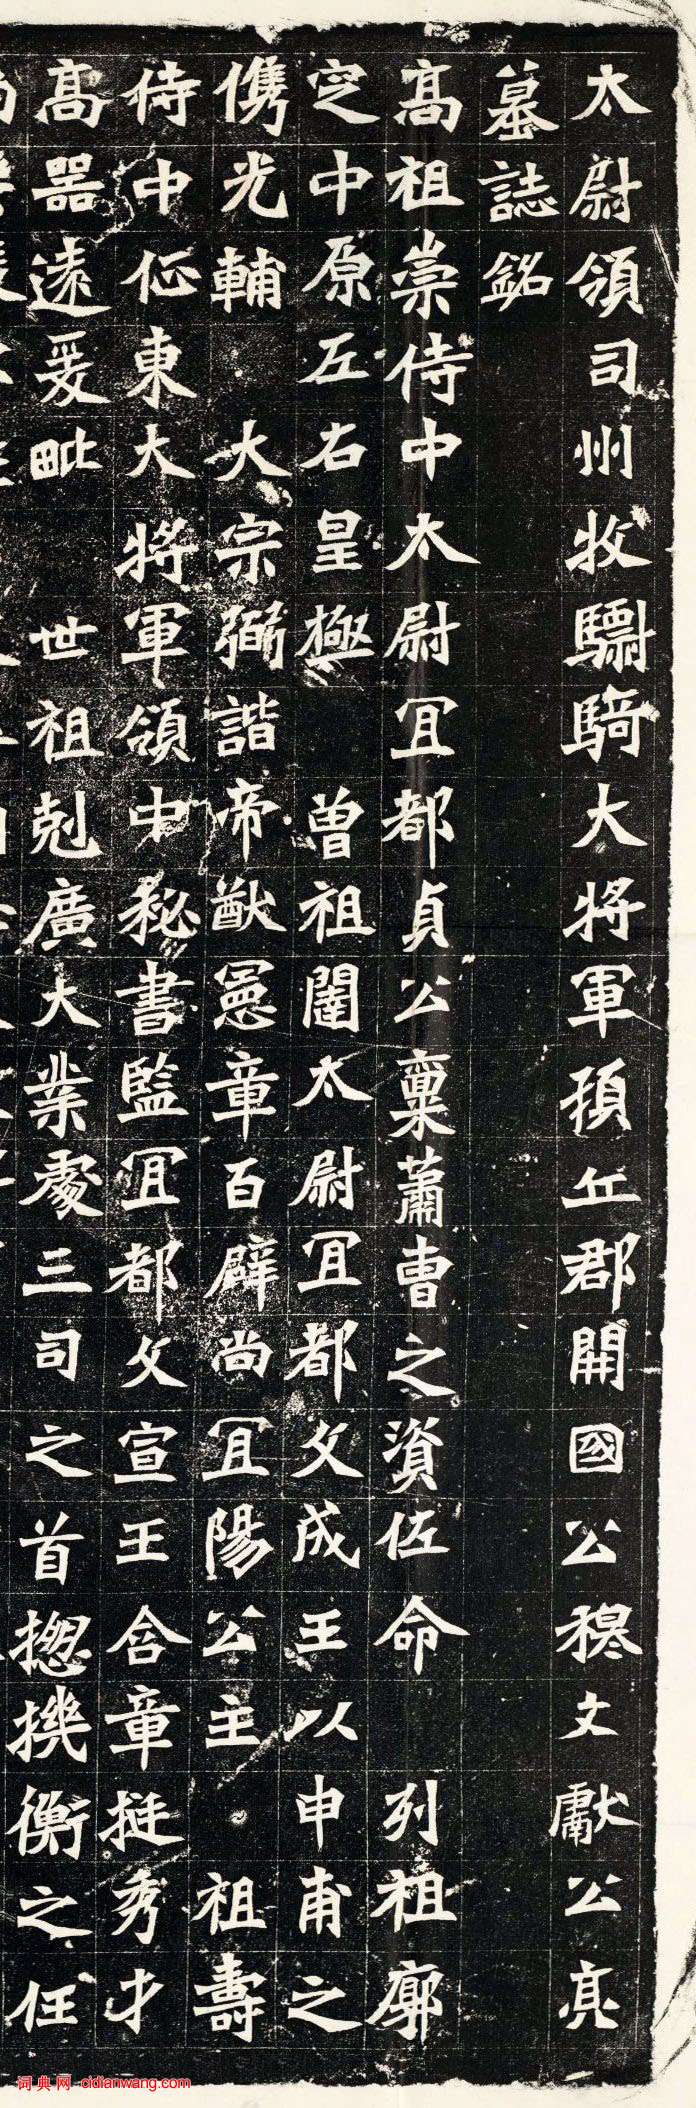 太尉領司州牧驃騎大將軍頓丘郡開國公穆文獻公亮
墓誌銘
高祖崇侍中太尉冝都貞公稟蕭曹之資佐命列祖廓
定中原左右皇極曾祖闥太尉冝都文成王以申甫之
儁光輔大宗弼諧帝猷憲章百辟尚冝陽公主祖壽
侍中征東大將軍領中秘書監冝都文宣王含章挺秀才
高器遠爰毗世祖剋廣大業處三司之首揔機衡之任
词典网 cidianwang.com